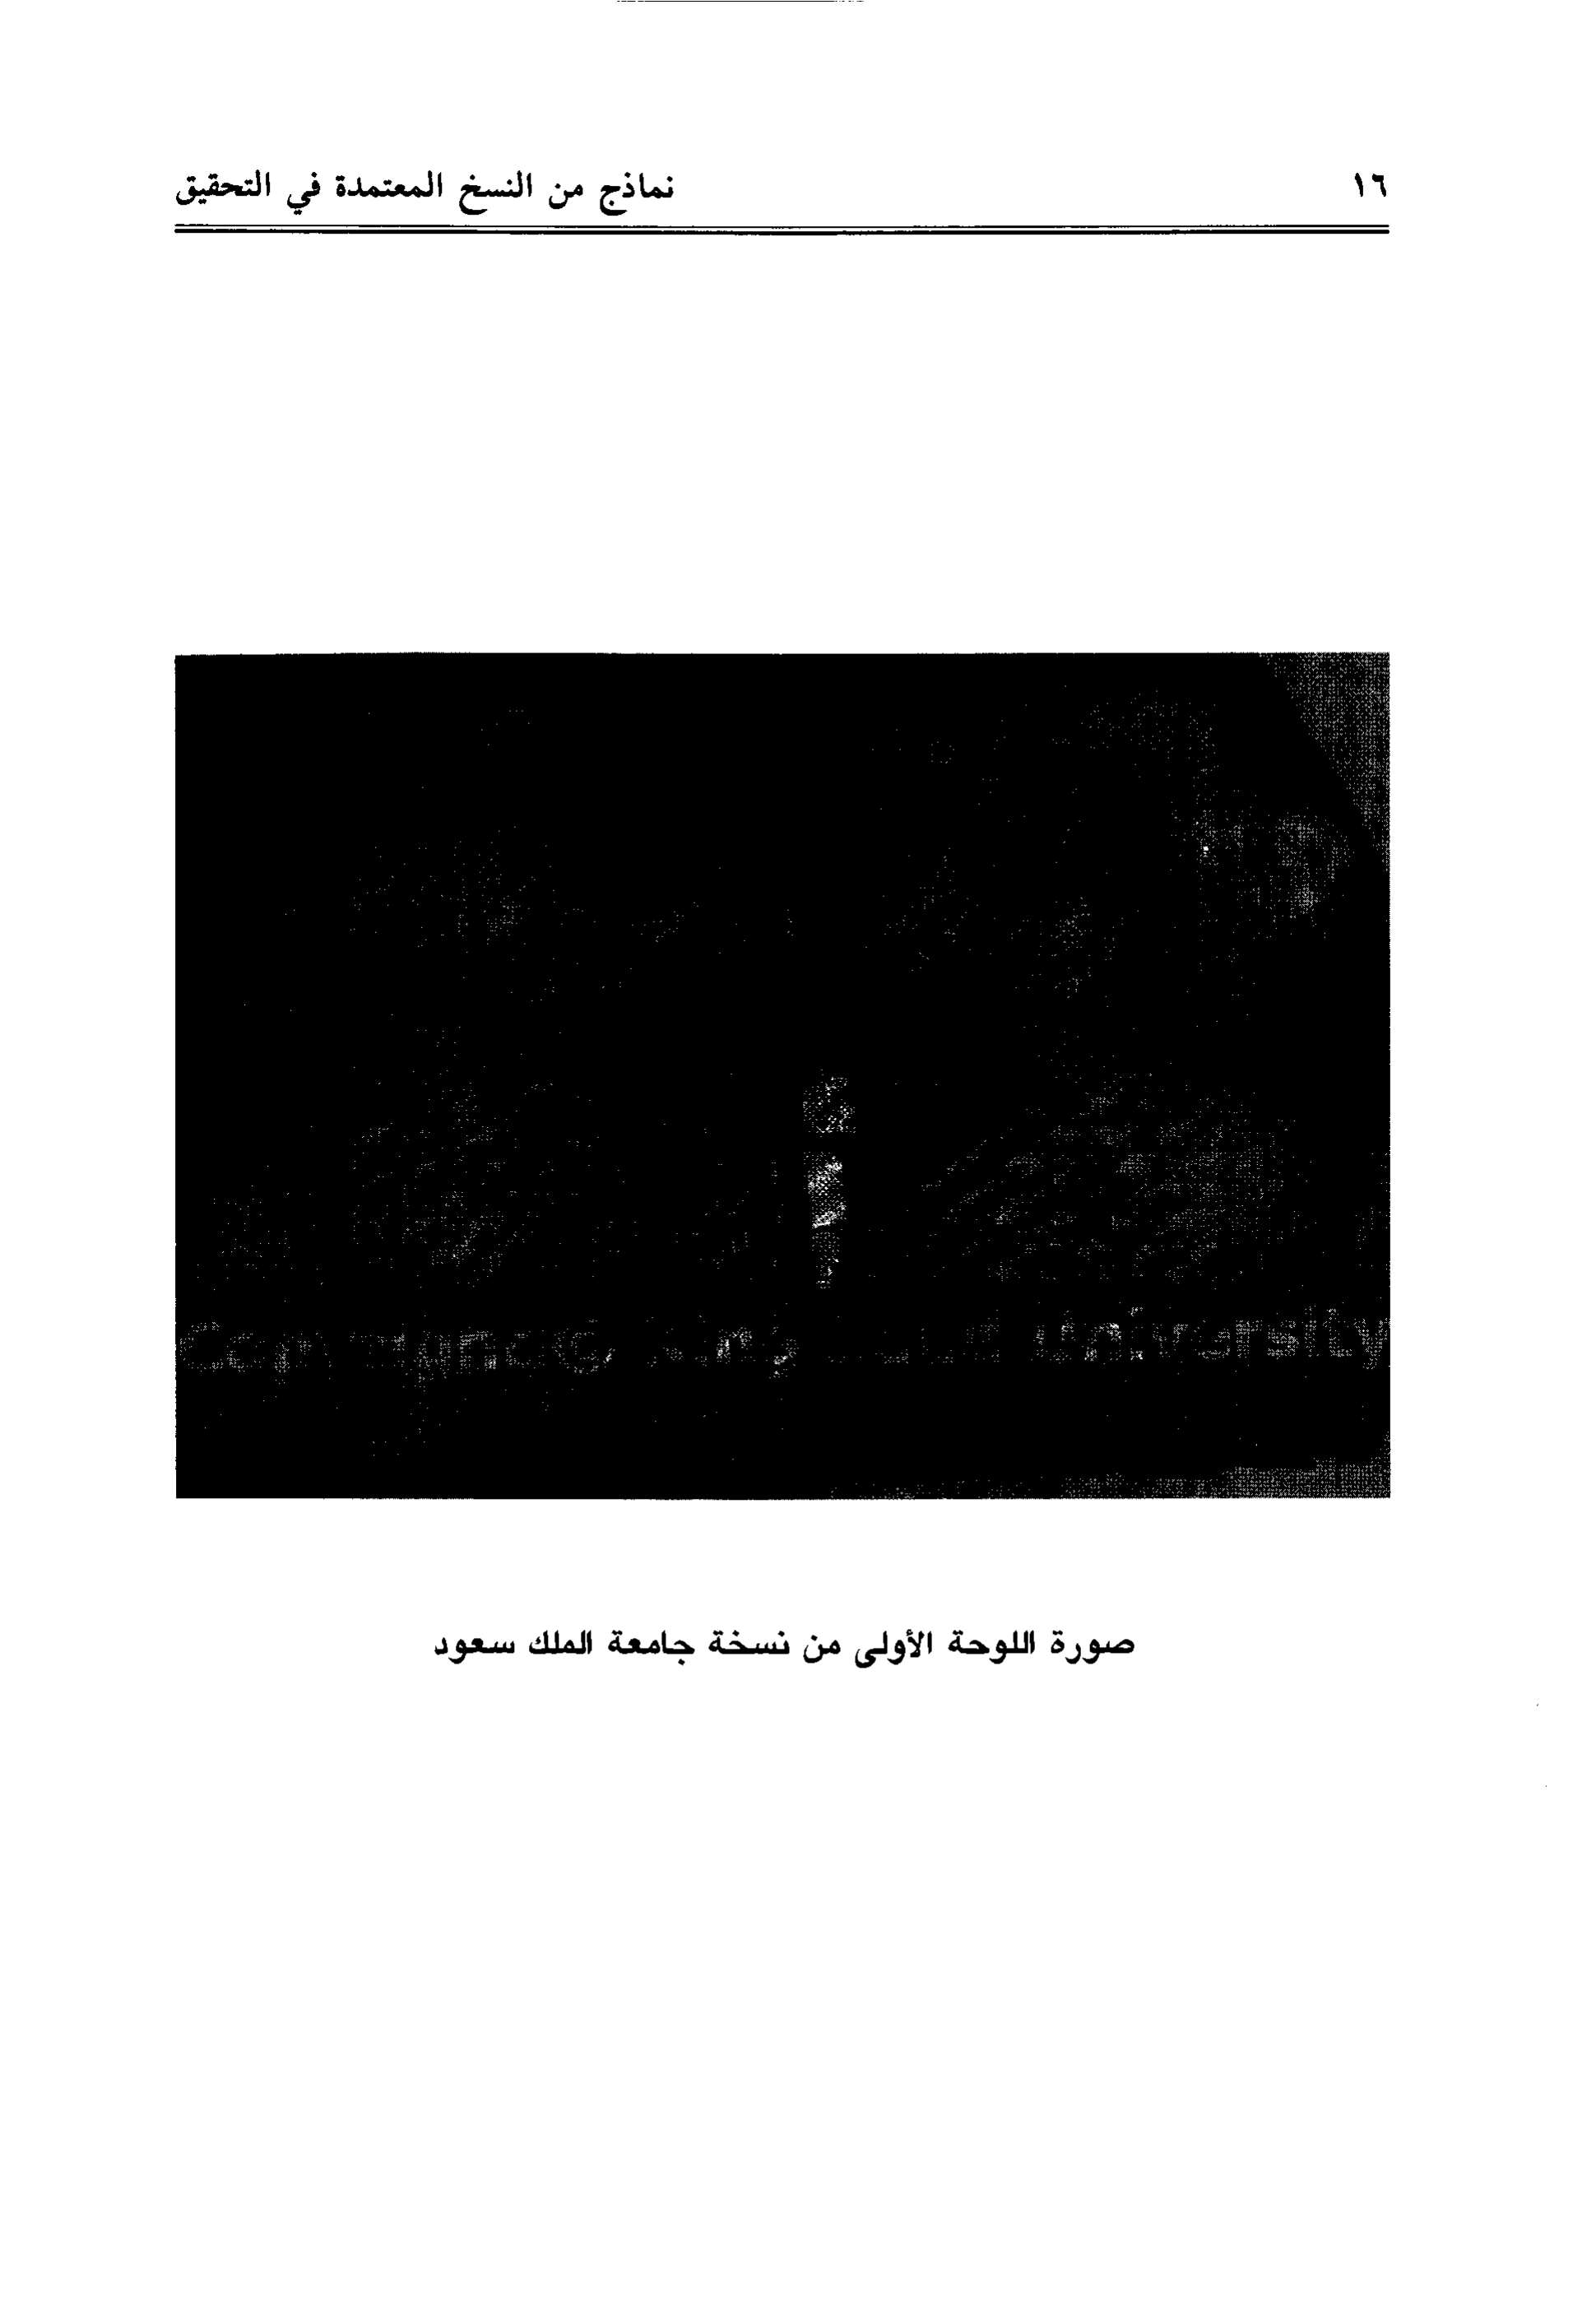 ١٦
نماذج من النسخ المعتمدة في التحقيق
University
صورة اللوحة الأولى من نسخة جامعة الملك سعود